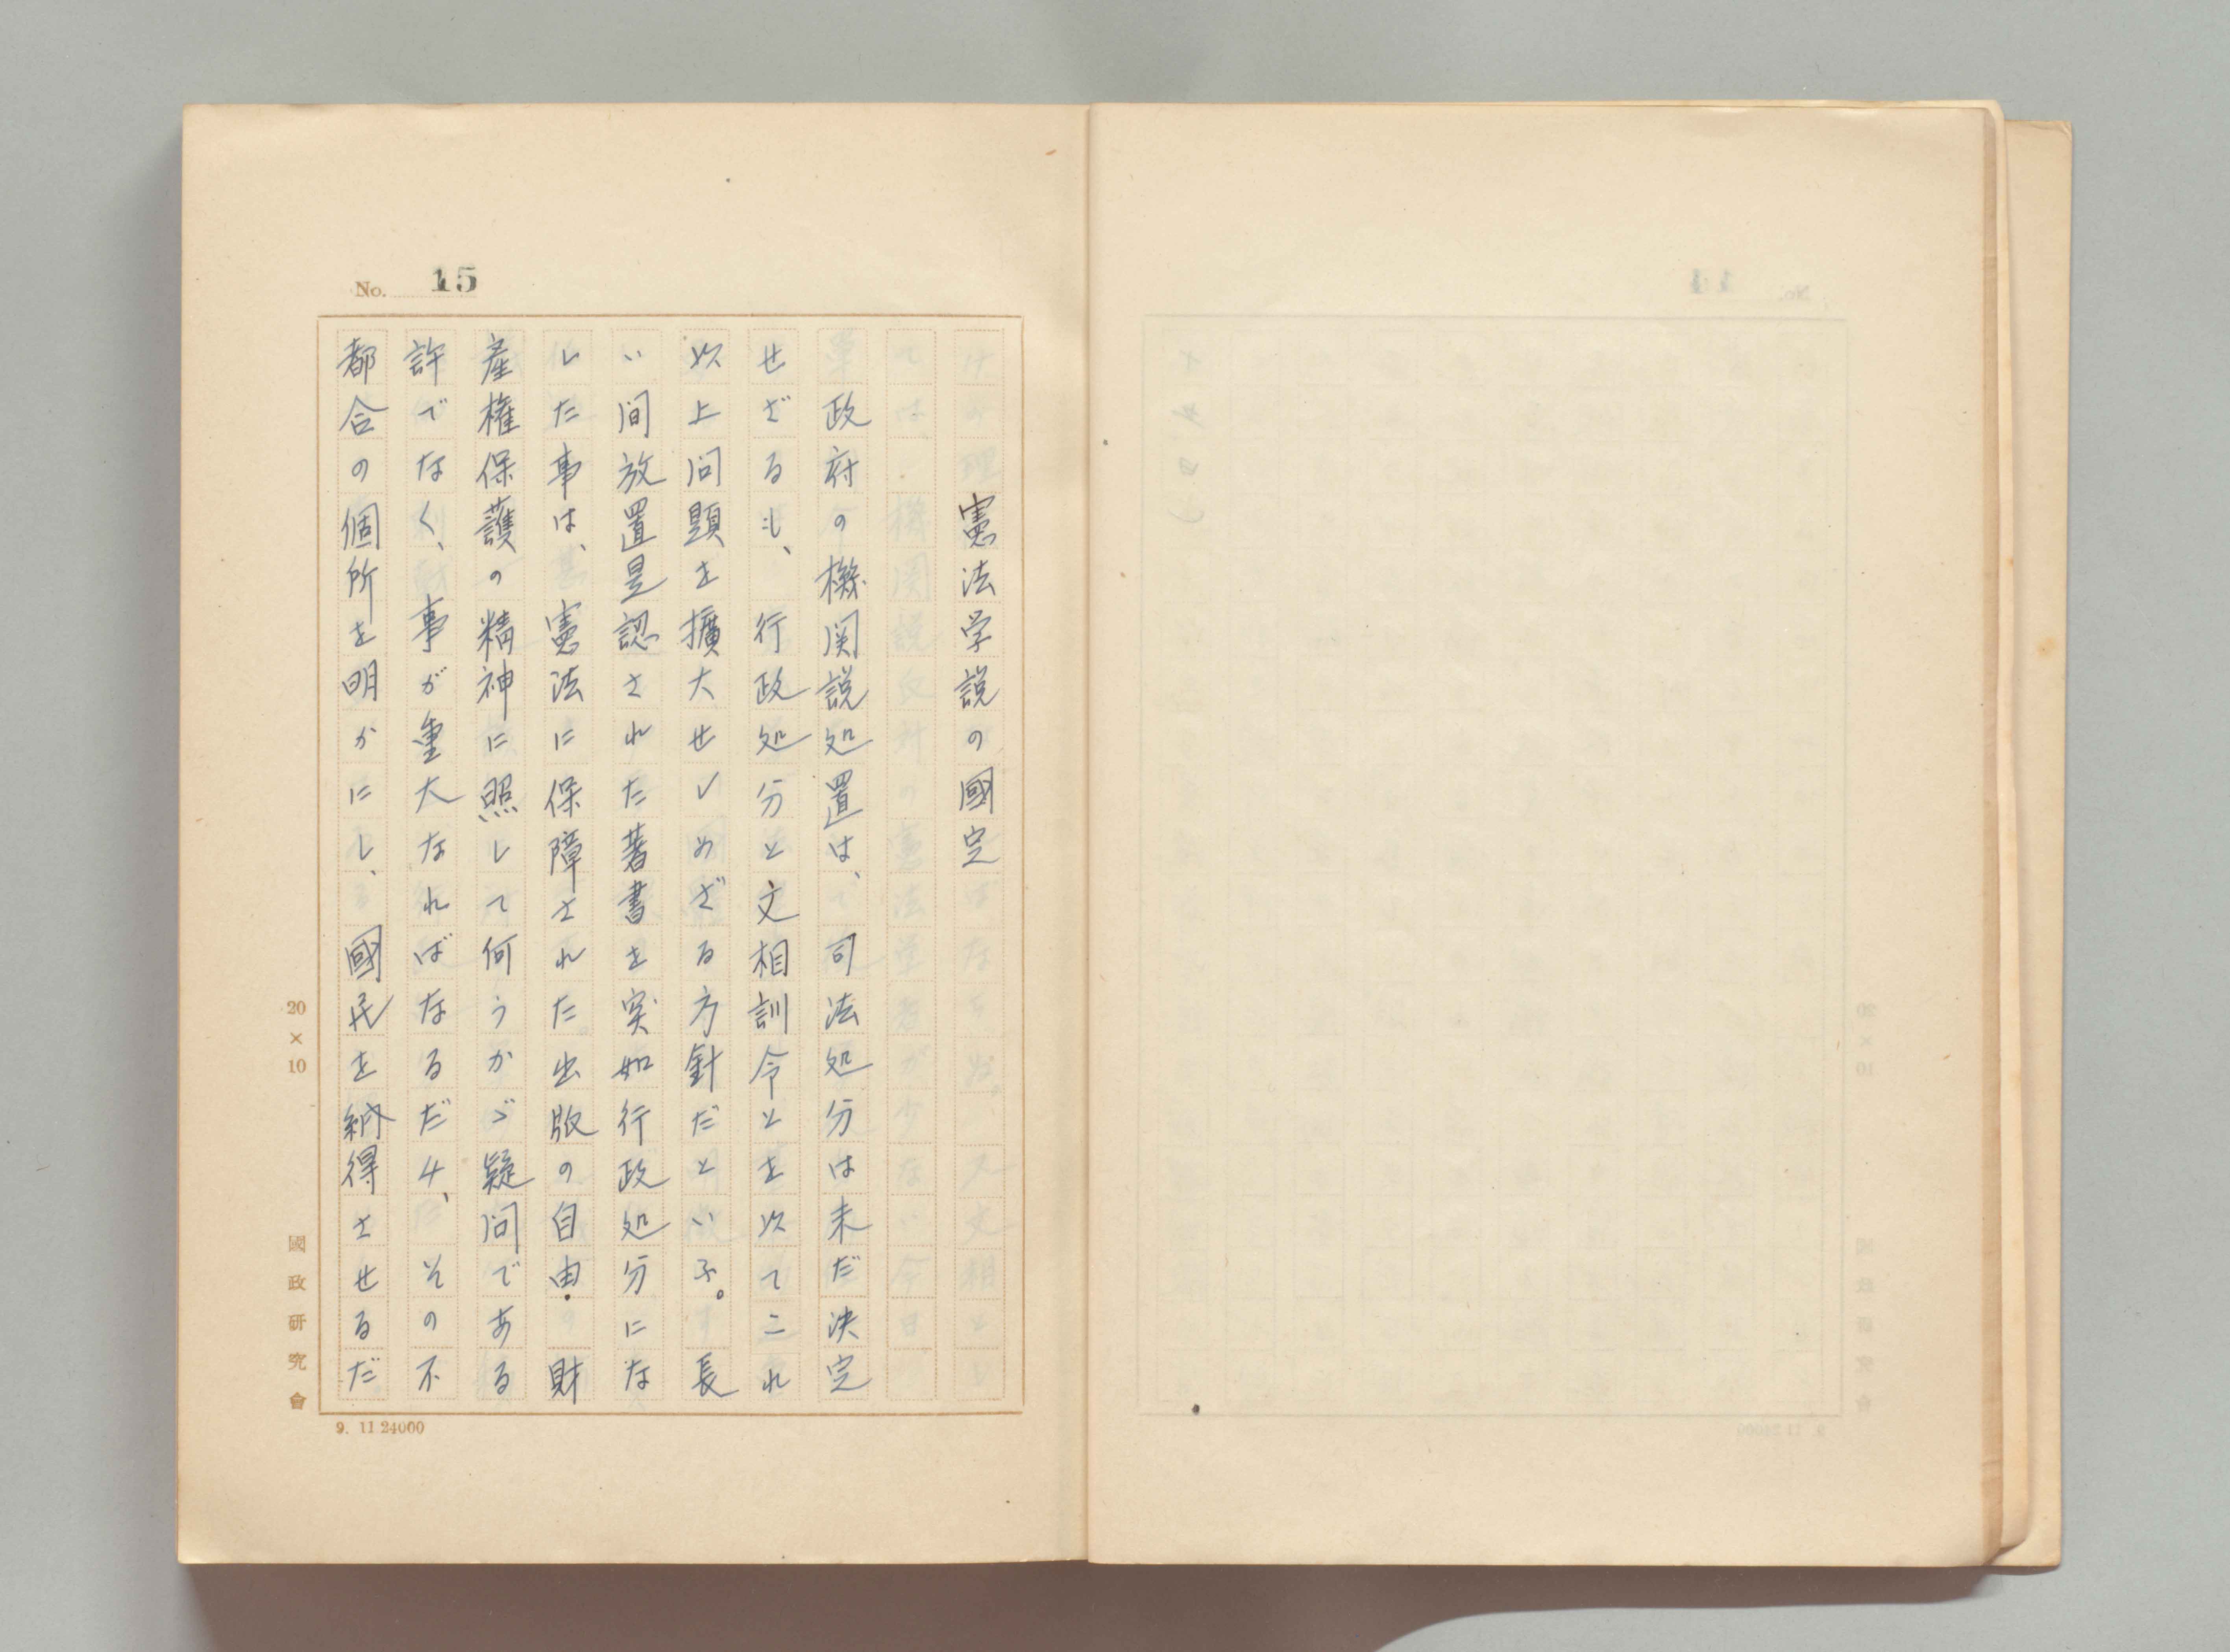 No. 15
憲法学説の國定
政府の機関説処置は、司法処分は未だ決定
せざるも、行政処分と文相訓令とを以てこれ
以上問題を擴大せしめざる方針だといふ。長
い間放置是認された著書を突如行政処分にな
した事は、憲法に保障された出版の自由・財
産権保護の精神に照して何うかゞ疑問である
許でなく、事が重大なればなるだけ、その不
都合の個所を明かにし、國民を納得させるだ
20×10
國政研究會
9. 11 24000